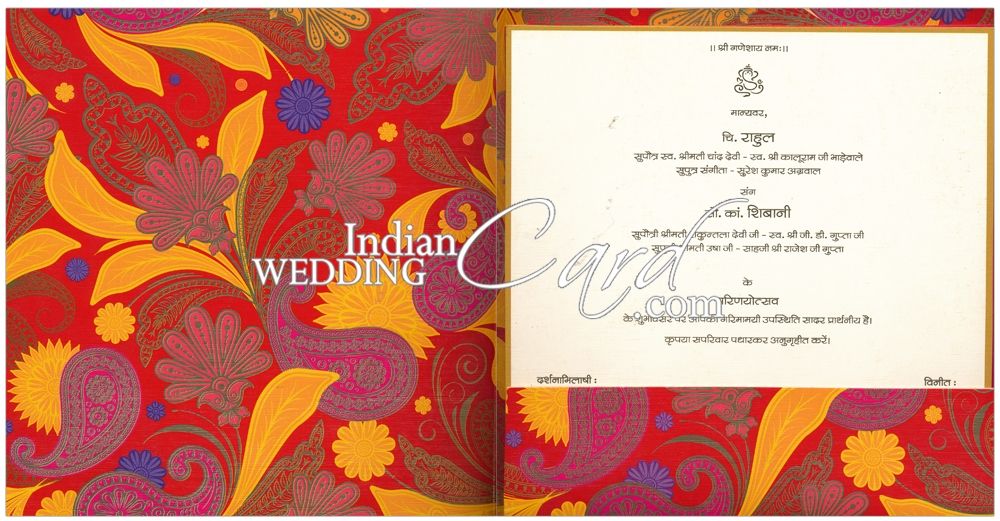 ।। श्री गणेशाय नमः।।
मान्यवर,
चि. राहुल
सुपौत्र स्व. श्रीमती चांद देवी - स्व. श्री कालूराम जी भाड़ेवाले
सुपुत्र संगीता - सुरेश कुमार अग्रवाल
संग
कां. शिबानी
सुपौत्री श्रीमती शकुन्तला देवी जी - स्व. श्री जी. डी. गुप्ता जी
उषा जी - साहजी श्री राजेश जी गुप्ता
के
परिणयोत्सव
के शुभावसर पर आपकी गरिमामयी उपस्थिति सादर प्रार्थनीय है।
कृपया सपरिवार पधारकर अनुगृहीत करें।
दर्शनाभिलाषी : विनीत :
Indian
WEDDING Card
.com